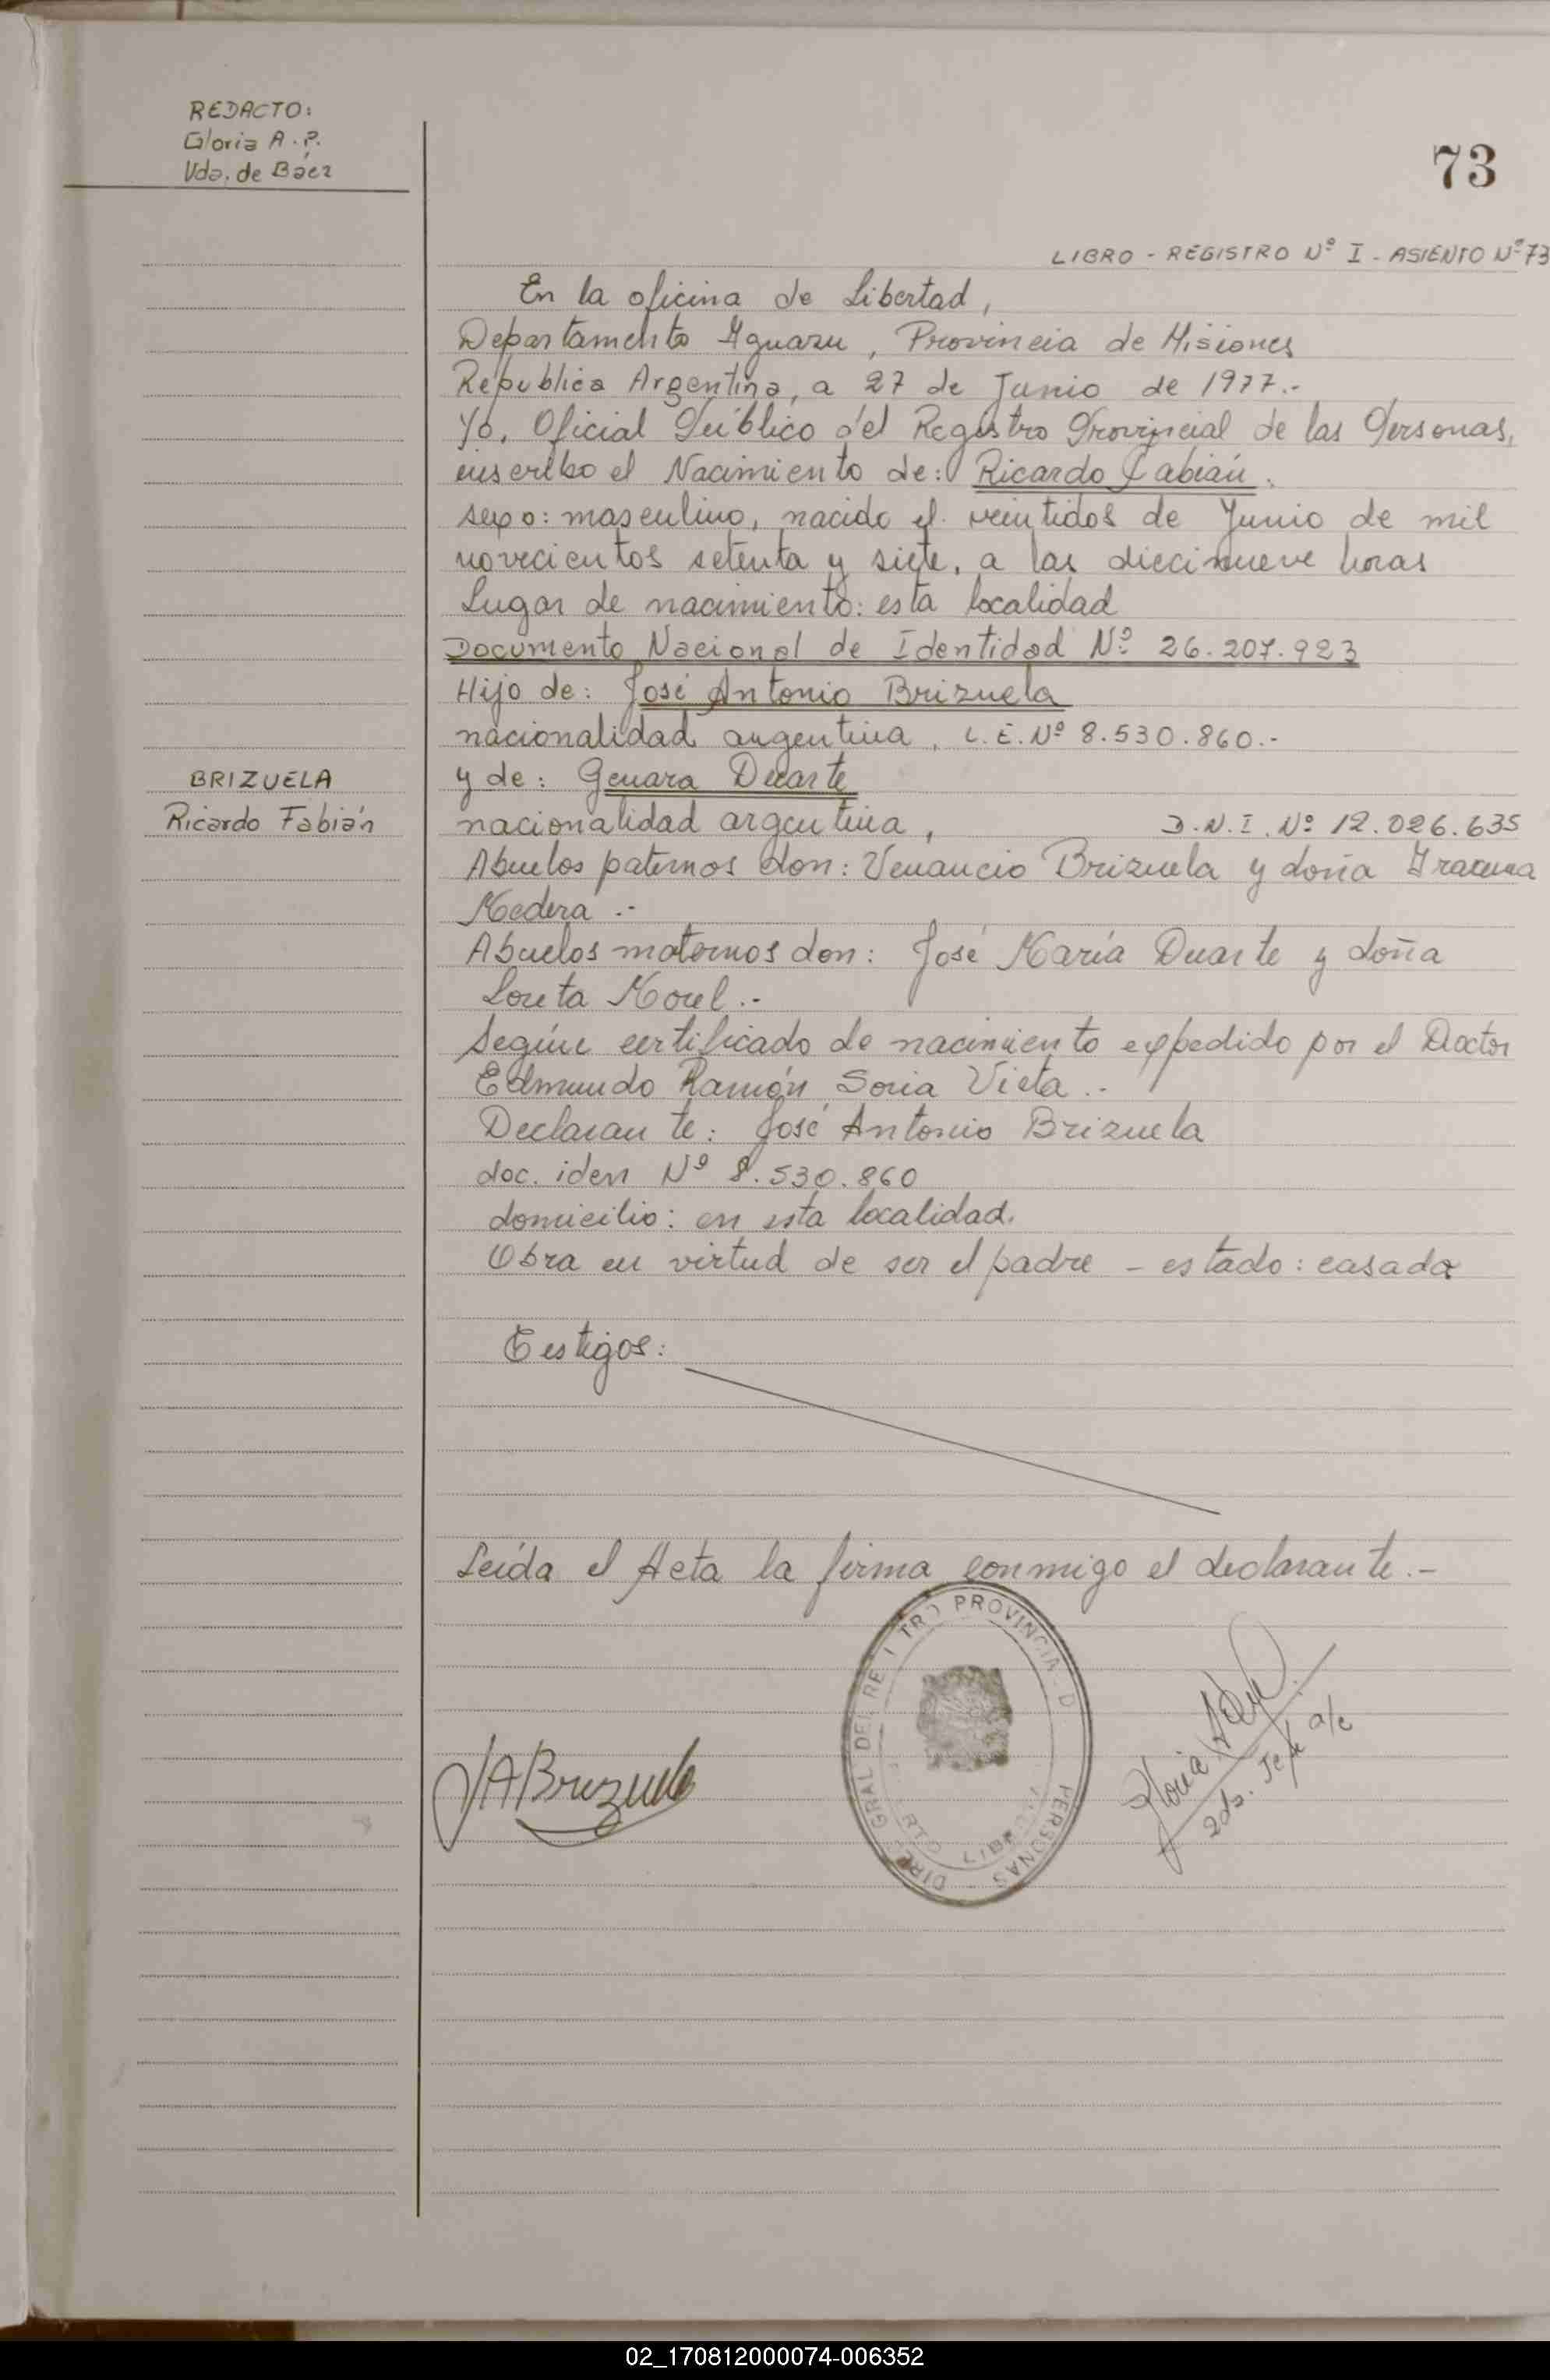 REDACTO:
Gloria A. P.
Vda. de Báez
73
LIBRO - REGISTRO Nº I - ASIENTO Nº 73
En la oficina de Libertad,
Departamento Iguazu, Provincia de Misiones
Republica Argentina, a 27 de Junio de 1977.-
Yo, Oficial Público del Registro Provincial de las Personas,
inscribo el Nacimiento de: Ricardo Fabián.
sexo: masculino, nacido el veintidos de Junio de mil
novecientos setenta y siete, a las diecinueve horas
Lugar de nacimiento: esta localidad
Documento Nacional de Identidad Nº 26.207.923
Hijo de: José Antonio Brizuela
nacionalidad argentina, L.E. Nº 8.530.860.-
BRIZUELA
Ricardo Fabián
y de: Genara Duarte
nacionalidad argentina, D.N.I. Nº 12.026.635
Abuelos paternos don: Venancio Brizuela y doña
Medera.-
Abuelos maternos don: José María Duarte y doña
Loreta Morel.-
Según certificado de nacimiento expedido por el Doctor
Edmundo Ramón Soria Vieta.-
Declarante: José Antonio Brizuela
doc. iden Nº 8.530.860
domicilio: en esta localidad.
Obra en virtud de ser el padre - estado: casada
Testigos:
Leída el Acta la firma conmigo el declarante.-
JABrizuela
DIREC GRAL DEL RE I TRO PROVINCIA D PERSONAS
Gloria
2da. Jefe a/c
02_170812000074-006352